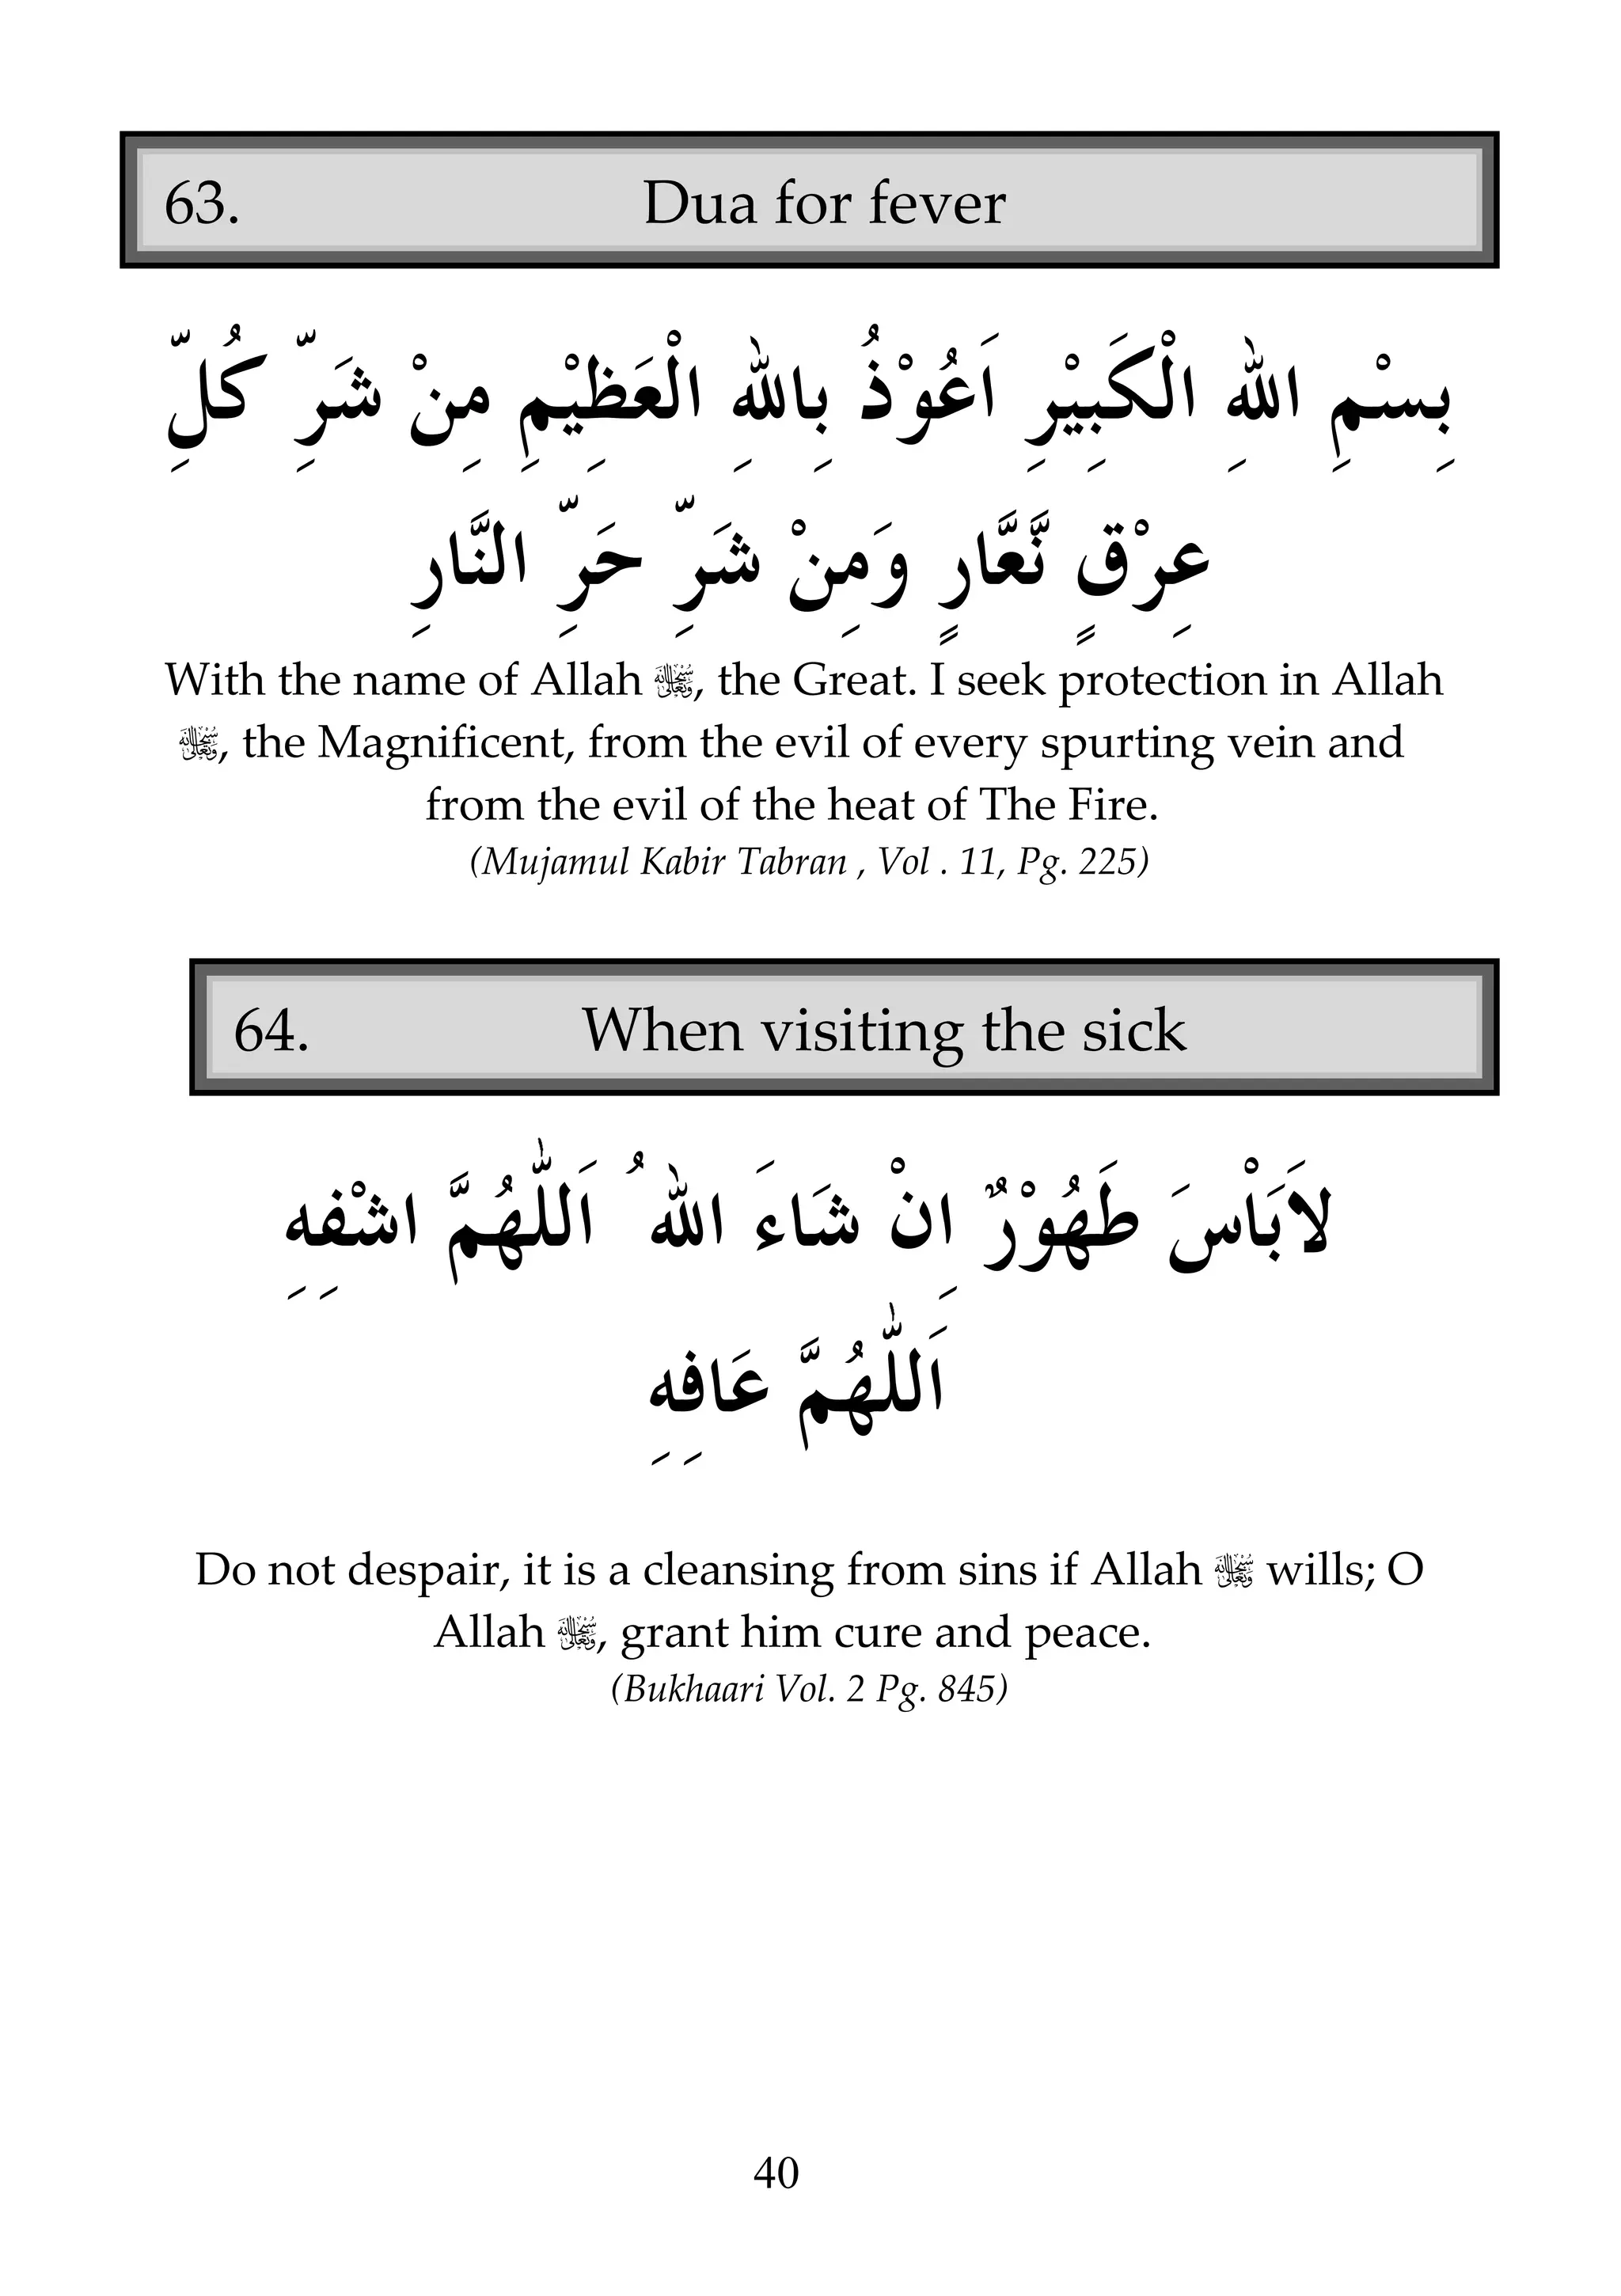 63. Dua for fever
بِسْمِ اللهِ الْكَبِيْرِ اَعُوْذُ بِاللهِ الْعَظِيْمِ مِنْ شَرِّ كُلِّ
عِرْقٍ نَّعَّارٍ وَمِنْ شَرِّ حَرِّ النَّارِ
With the name of Allah ﷾, the Great. I seek protection in Allah
﷾, the Magnificent, from the evil of every spurting vein and
from the evil of the heat of The Fire.
(Mujamul Kabir Tabran , Vol . 11, Pg. 225)
64. When visiting the sick
لَابَاْسَ طَهُوْرٌ اِنْ شَاءَ اللهُ اَللّٰهُمَّ اشْفِهِ
اَللّٰهُمَّ عَافِهِ
Do not despair, it is a cleansing from sins if Allah ﷾ wills; O
Allah ﷾, grant him cure and peace.
(Bukhaari Vol. 2 Pg. 845)
40